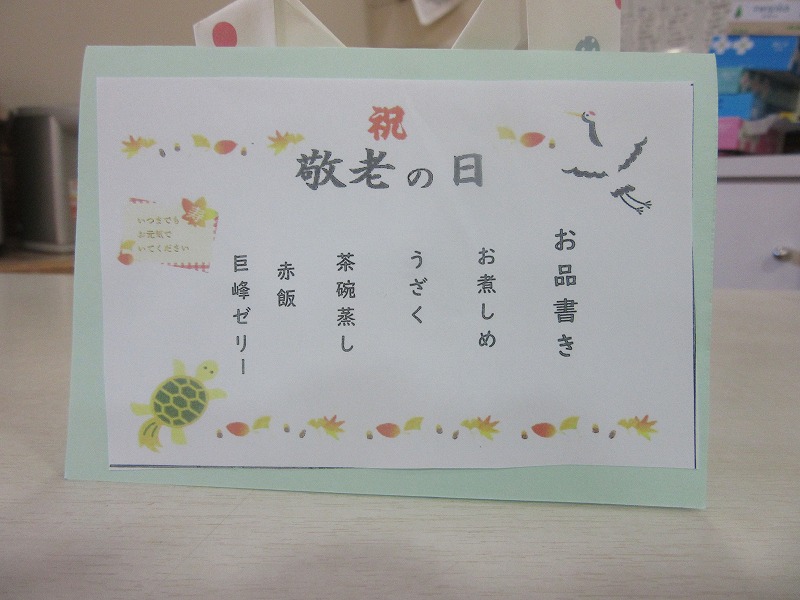 祝
敬老の日
お品書き
お煮しめ
うざく
茶碗蒸し
赤飯
巨峰ゼリー
いつまでも
お元気で
いてください